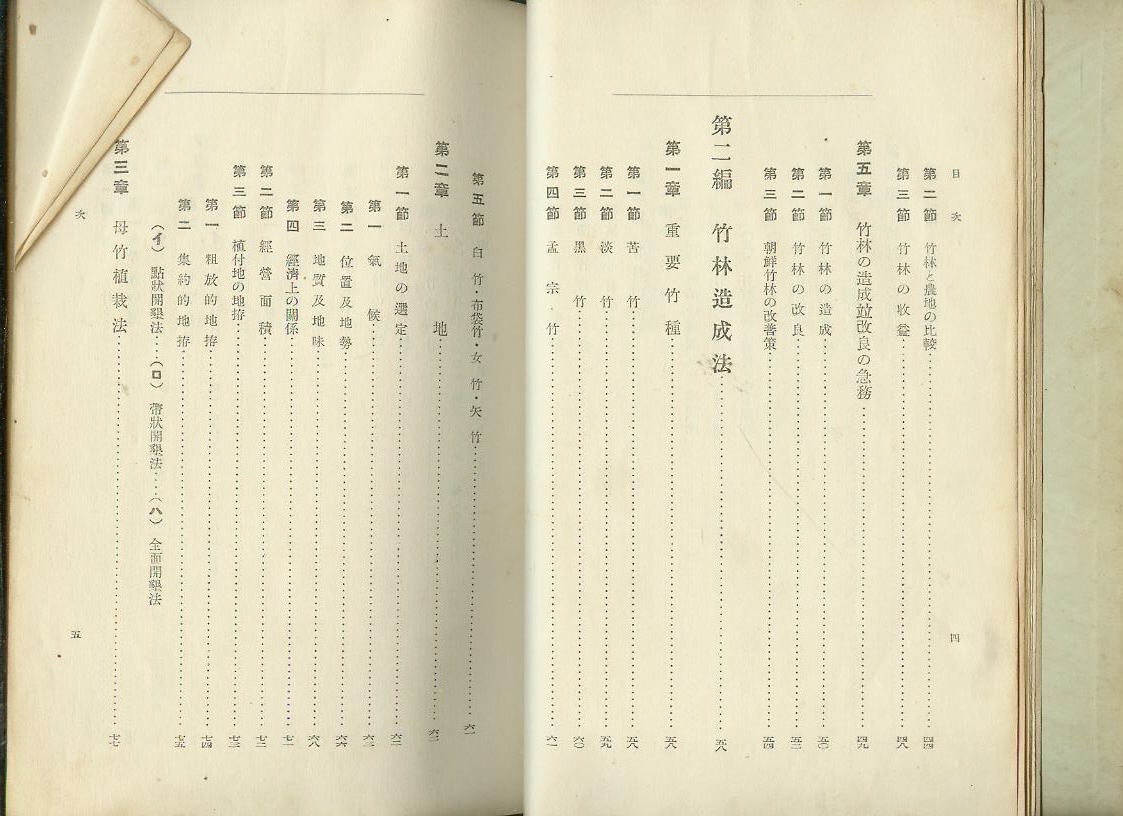 目次
第二節 竹林と農地の比較……四四
第三節 竹林の收益……四八
第五章 竹林の造成竝改良の急務……四九
第一節 竹林の造成……五〇
第二節 竹林の改良……五二
第三節 朝鮮竹林の改善策……五四
第二編 竹林造成法……五八
第一章 重要竹種……五八
第一節 苦竹……五八
第二節 淡竹……五九
第三節 黑竹……六〇
第四節 孟宗竹……六一
四
第五節 白竹・布袋竹・女竹・矢竹……六一
第二章 土地……六二
第一節 土地の選定……六二
第一 氣候……六三
第二 位置及地勢……六六
第三 地質及地味……六八
第四 經濟上の關係……七一
第二節 經營面積……七二
第三節 植付地の地拵……七三
第一 粗放的地拵……七四
第二 集約的地拵……七五
(イ) 點狀開墾法…(ロ) 帶狀開墾法…(ハ) 全面開墾法
第三章 母竹植栽法……七七
次
五